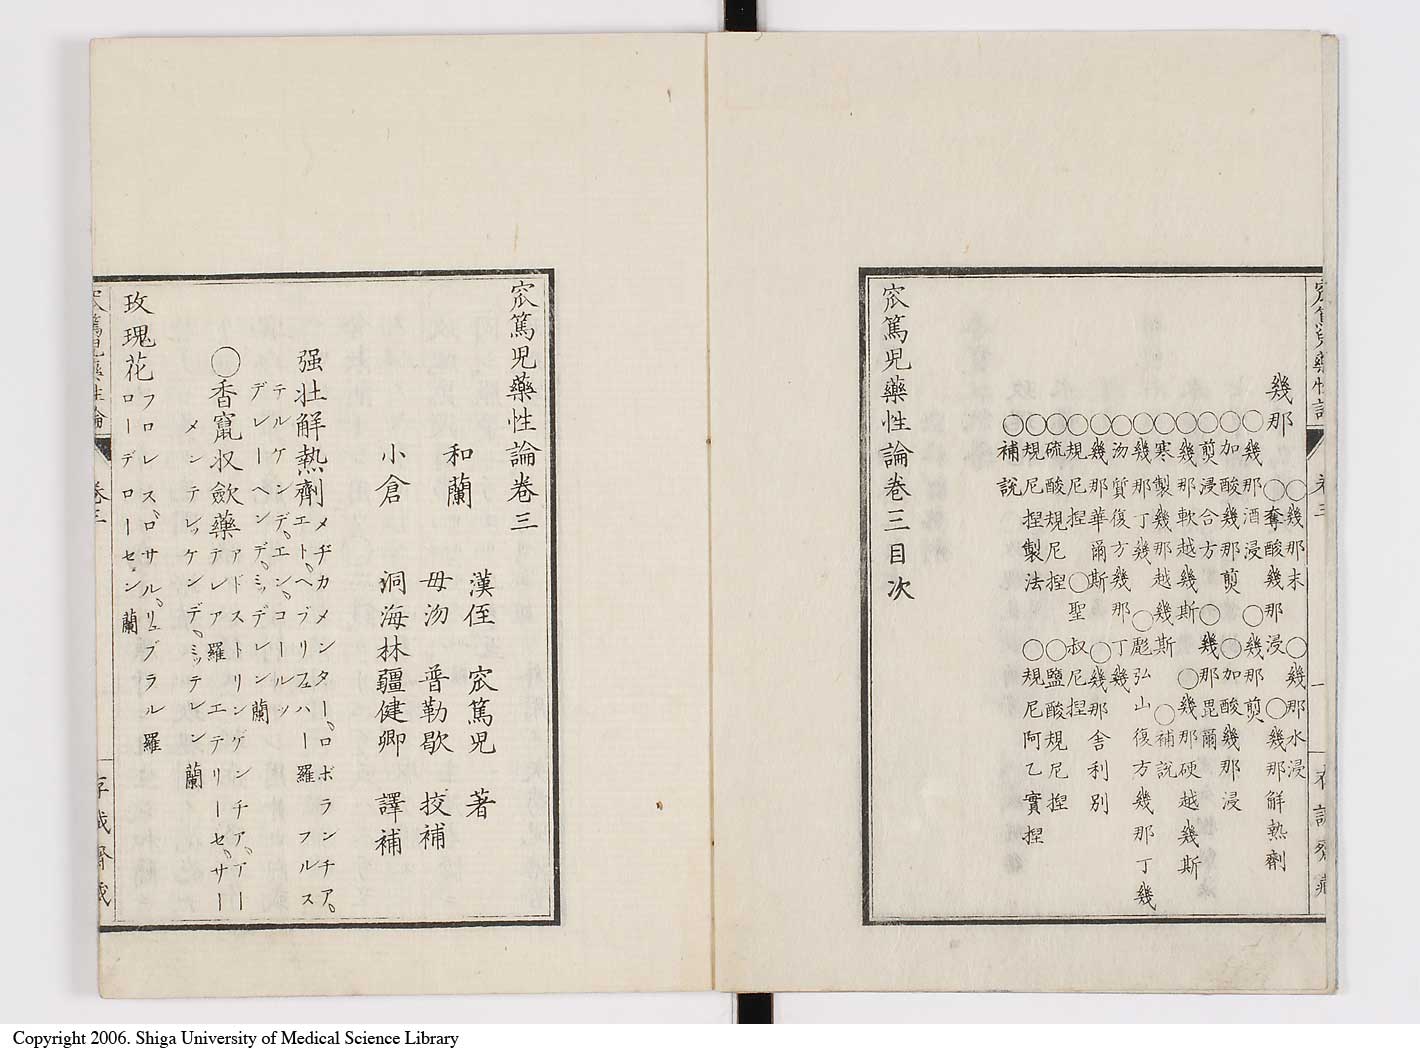 幾那
○幾那末 ○幾那水浸
○奪酸幾那浸 ○幾那解熱劑
○幾那酒浸 ○幾那煎
○加酸幾那煎 ○加酸幾那浸
○煎浸合方 ○幾那毘爾
○幾那軟越幾斯 ○幾那硬越幾斯
○寒製幾那越幾斯 ○補説
○幾那丁幾 ○彪弘山復方幾那丁幾
○汤質復方幾那丁幾
○幾那華爾斯 ○幾那舎利別
○規尼捏 ○聖叔尼捏
○硫酸規尼捏 ○鹽酸規尼捏
○規尼捏製法 ○規尼阿乙實捏
○補説
窊篤児藥性論卷三目次
窊篤児藥性論卷三
漢侄 窊篤児 著
和蘭
毋沕 普勒歇 挍補
小倉 洞海林疆健卿 譯補
强壮解熱劑
メヂカメンター。ロボランチア。
エト。ヘブリフュハー羅 フルス
テルケンデ。エン。コールツ
デレーヘンデ。ミッデレン蘭
○香竄収歛藥
テレア羅 エテリーセ。サー
アドストリンゲンチア。アー
メンテレッケンデ。ミッテレン 蘭
玫瑰花
フロレス。ロサルリュブラル羅
ローデローセン 蘭
卷三
存誠齋蔵